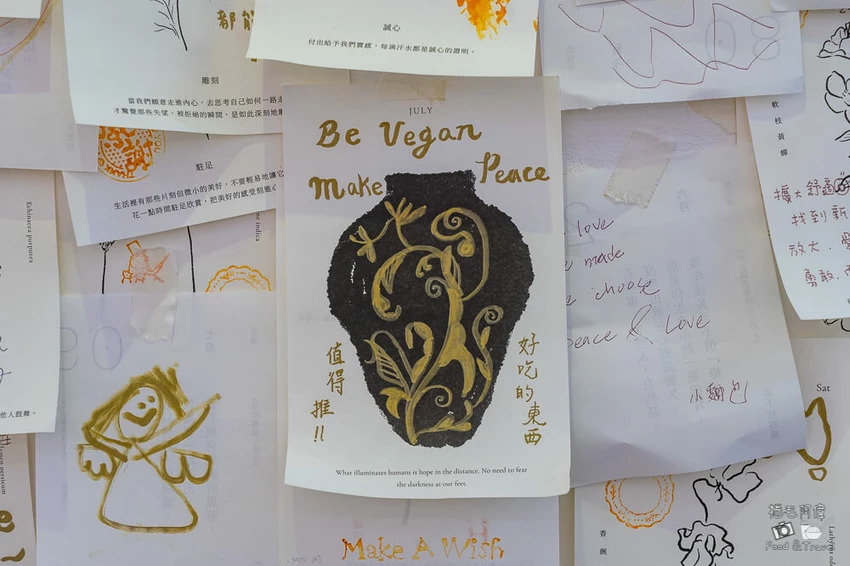 誠心
付出給予我們實感，每滴汗水都是誠心的證明。
雕刻
當我們願意走進內心，去思考自己如何一路走
才驚覺那些失望、被拒絕的瞬間，是如此深刻地雕
駐足
生活裡有那些片刻但微小的美好，不要輕易地讓它
花一點時間駐足欣賞，把美好的感受刻進心
Echinacea purpurea
七月
他人鼓舞。
JULY
Be Vegan
Make Peace
好吃的東西
值得推!!
What illuminates humans is hope in the distance. No need to fear
the darkness at our feet.
Make A Wish
love
made
choose
peace & Love
小麵包
軟枝黃蟬
擴大舒適
找到新
放大、愛
勇敢、
Sat
香豌
Food & Travel